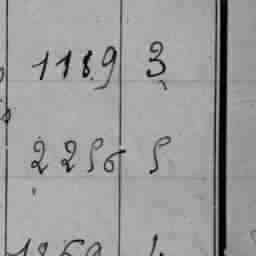 1189 3
2256 5
1869